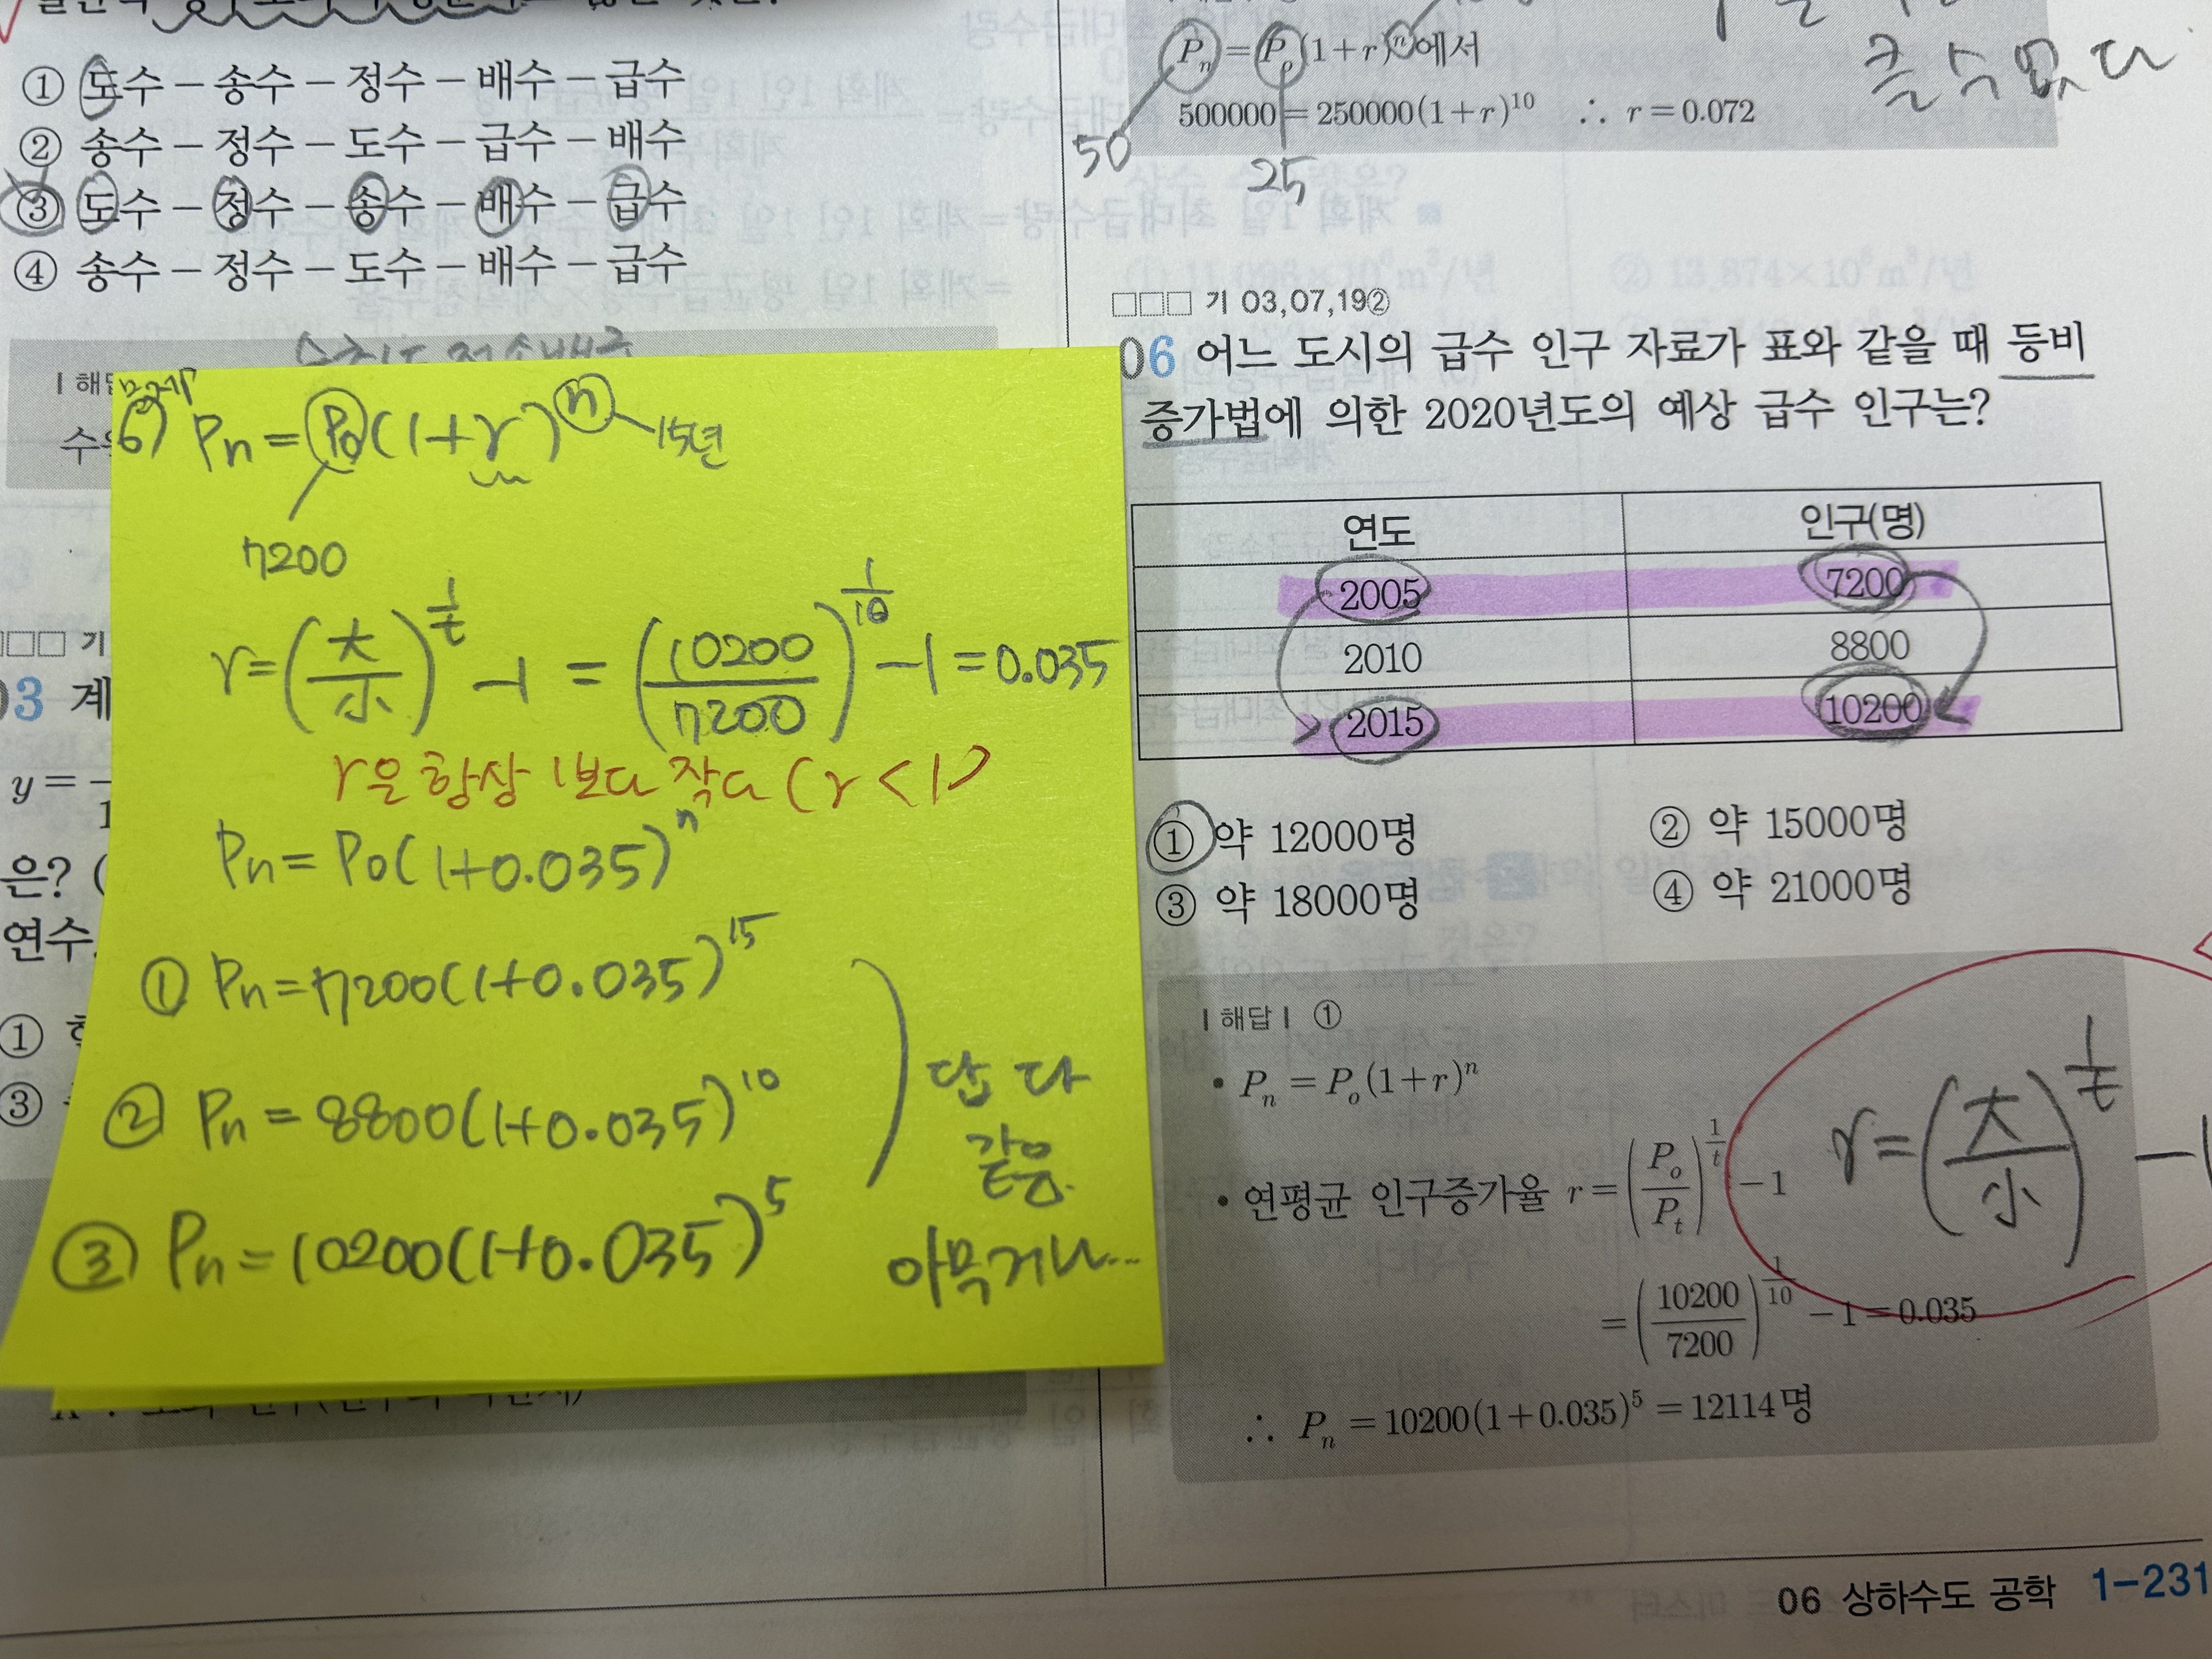 ① 도수 – 송수 – 정수 – 배수 – 급수
② 송수 – 정수 – 도수 – 급수 – 배수
③ 도수 – 정수 – 송수 – 배수 – 급수
④ 송수 – 정수 – 도수 – 배수 – 급수
| 해답
수
□□□ 기
03 계
y =
1
은? (
연수
①
③
6) Pn = P0(1+r)^n 15년
7200
r = (大/小)^(1/t) - 1 = (10200/7200)^(1/10) - 1 = 0.035
r은 항상 1보다 작다 (r < 1)
Pn = P0(1+0.035)^n
① Pn = 7200(1+0.035)^15
② Pn = 8800(1+0.035)^10
③ Pn = 10200(1+0.035)^5
답 다
같음.
아무거나...
Pn = Po(1+r)^n에서
클 수 없다
500000 = 250000(1+r)^10 ∴ r = 0.072
50
25
□□□ 기 03,07,19②
06 어느 도시의 급수 인구 자료가 표와 같을 때 등비
증가법에 의한 2020년도의 예상 급수 인구는?
연도 인구(명)
2005 7200
2010 8800
2015 10200
① 약 12000명 ② 약 15000명
③ 약 18000명 ④ 약 21000명
| 해답 | ①
• Pn = Po(1+r)^n
• 연평균 인구증가율 r = (Po/Pt)^(1/t) - 1
r = (大/小)^(1/t) - 1
= (10200/7200)^(1/10) - 1 = 0.035
∴ Pn = 10200(1+0.035)^5 = 12114명
06 상하수도 공학 1-231